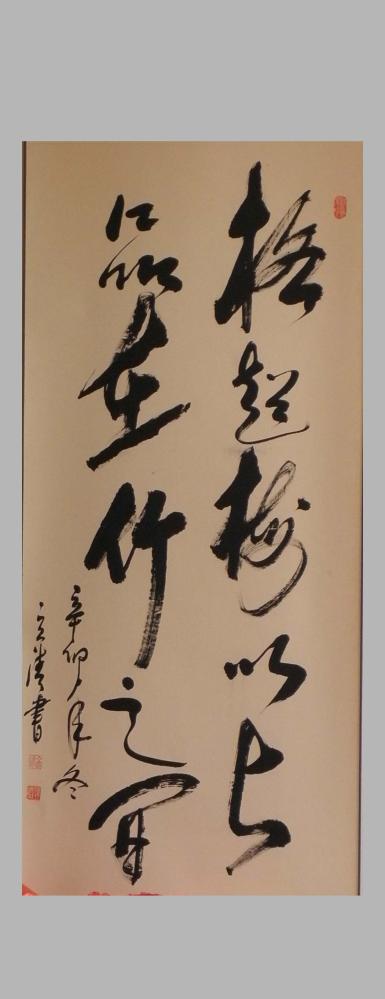 格超梅以上
品在竹之間
辛卯年冬
書